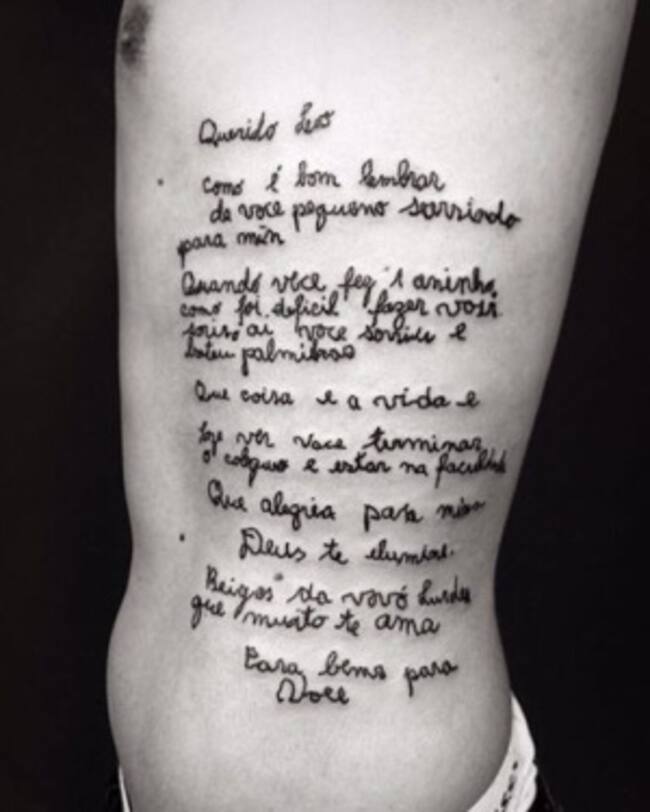 Querido Leo
como é bom lembrar
de voce pequeno sorrindo
para min
Quando voce fez 1 aninho
como foi deficil fazer voce
ai voce sorriu e
bateu palminhas
Que coisa e a vida e
hoje ver voce terminar
o colegio e estar na faculdade
Que alegria para min
Deus te elumine.
Beigos da vovó Lurdes
que muito te ama
Para bems para
Voce